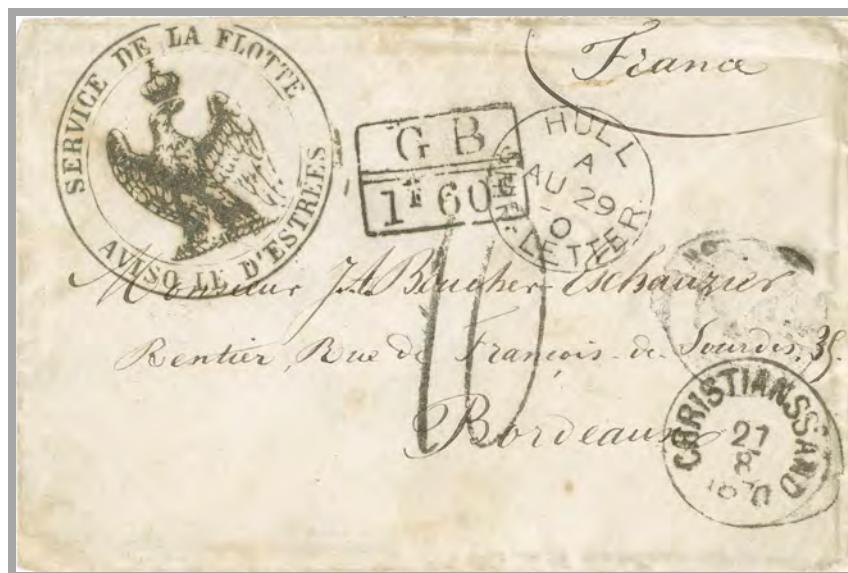 France
SERVICE DE LA FLOTTE
AVISO LE D'ESTRÉES
GB
1F 60c
HULL
A
AU 29
0
SHIP-LETTER
Monsieur J.A. Boucher-Eschauzier
Rentier, Rue de François-de-Sourdis. 35.
Bordeaux
CHRISTIANSSAND
27
8
1870